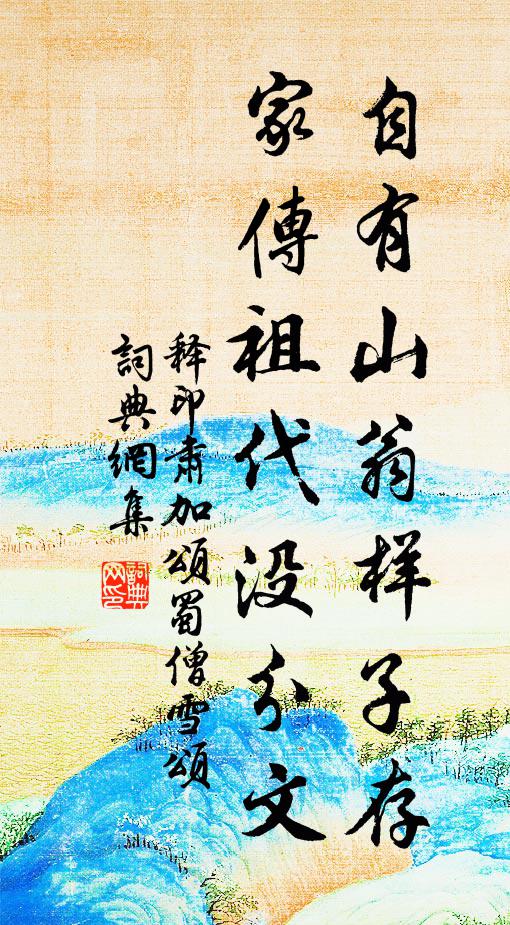 自有山翁样子存
家傳祖代没分文
释印肃加頌蜀僧雪頌
詞典網集
詞典網印